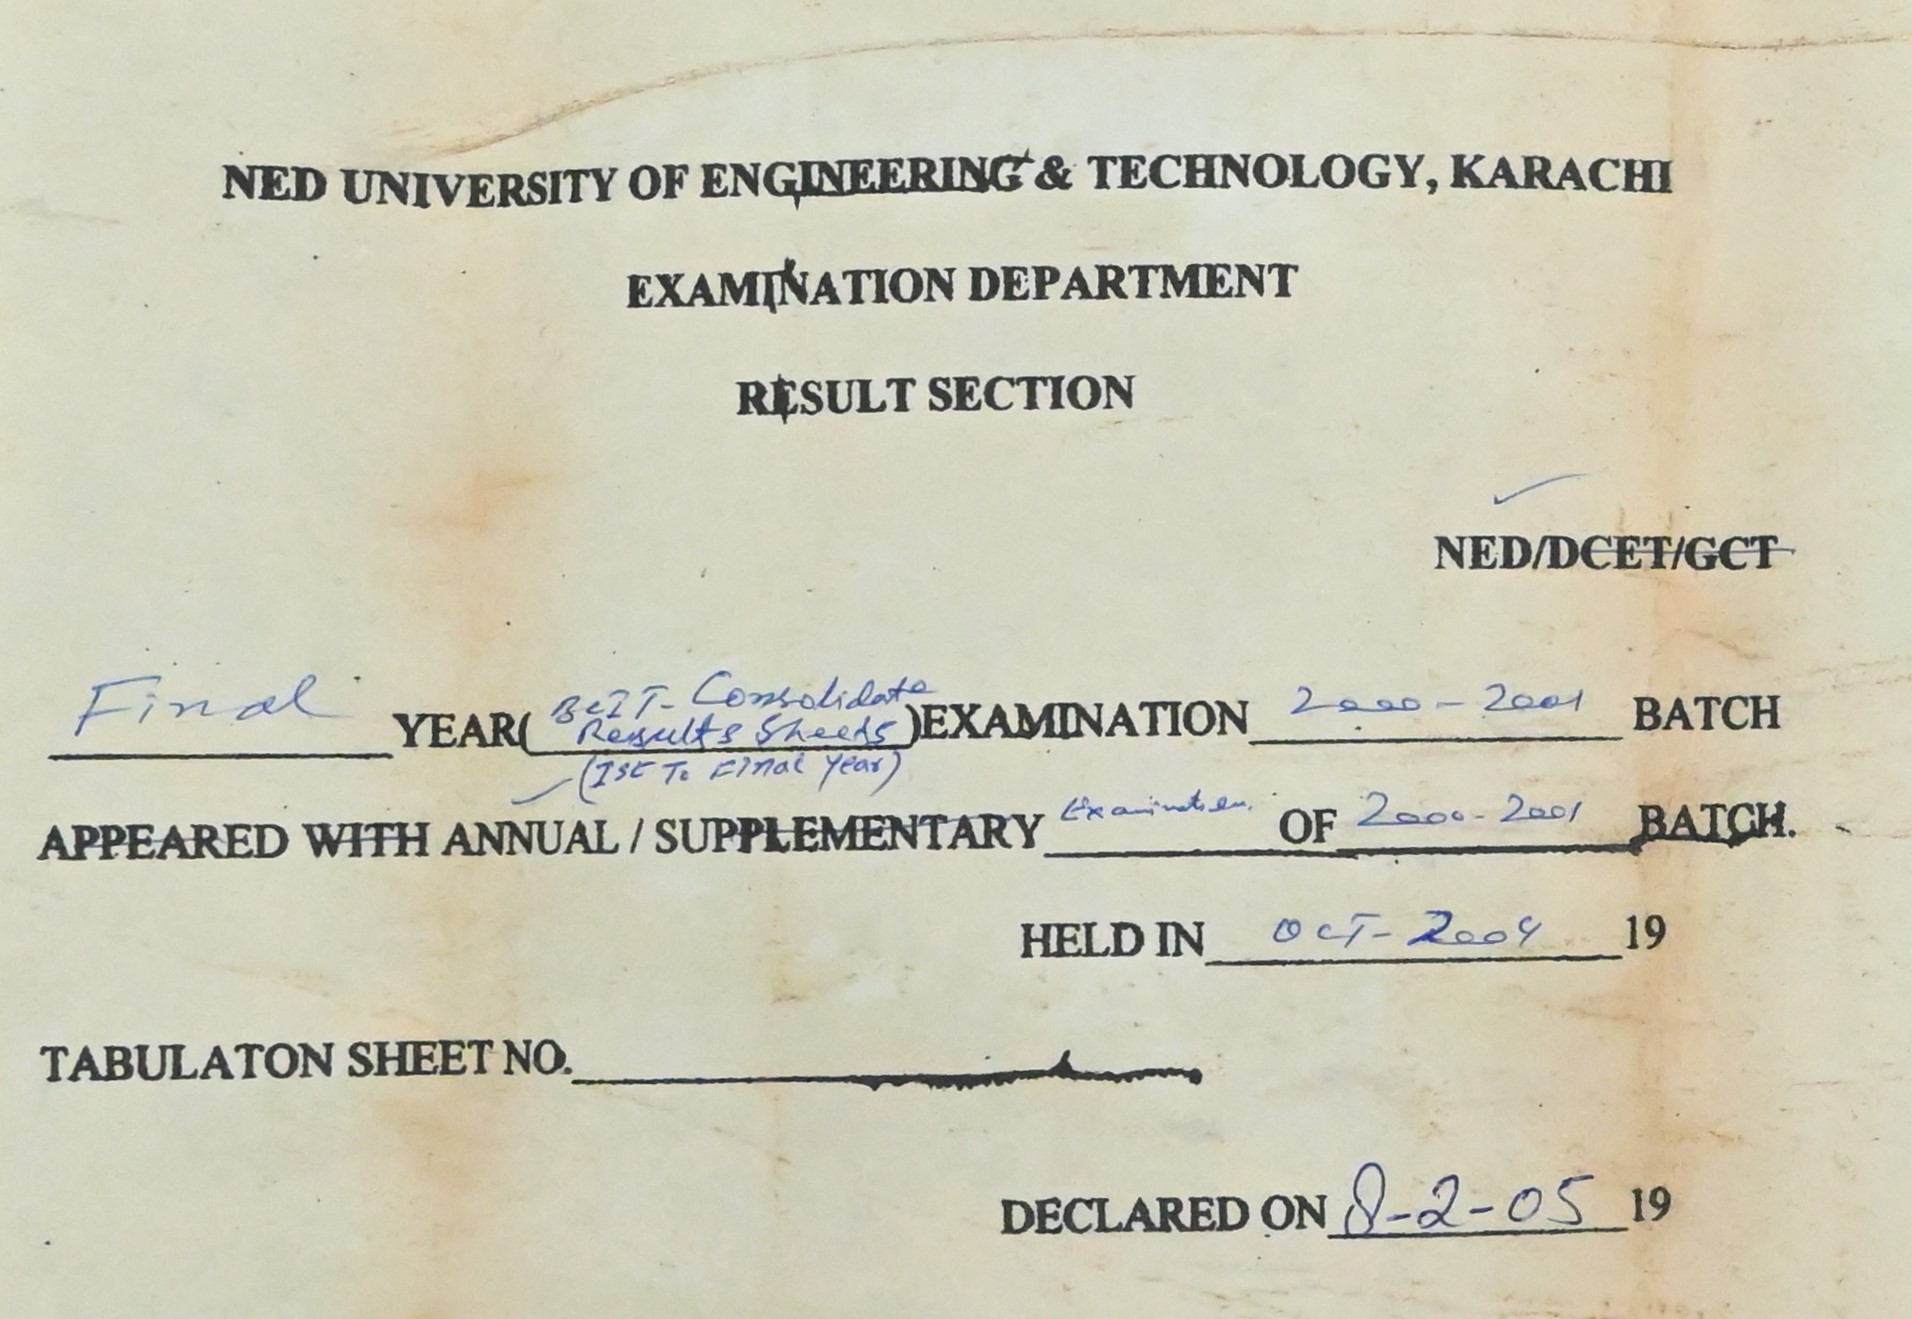 NED UNIVERSITY OF ENGINEERING & TECHNOLOGY, KARACHI
EXAMINATION DEPARTMENT
RESULT SECTION
NED/DCET/GCT
Final YEAR( BCIT- Consolidate Results Sheets )EXAMINATION 2000-2001 BATCH
(Ist To Final Year)
APPEARED WITH ANNUAL / SUPPLEMENTARY Examination. OF 2000-2001 BATCH.
HELD IN OCT-2004 19
TABULATON SHEET NO.
DECLARED ON 8-2-05 19